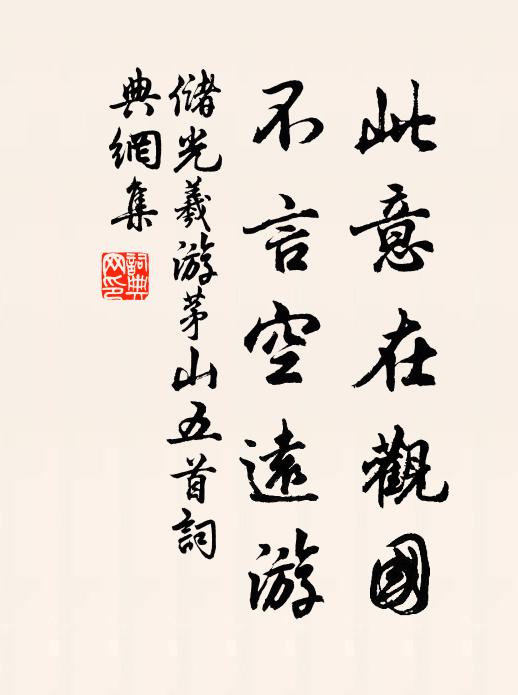 此意在觀國
不言空遠游
儲光羲游茅山五首詞
典網集
詞典网印